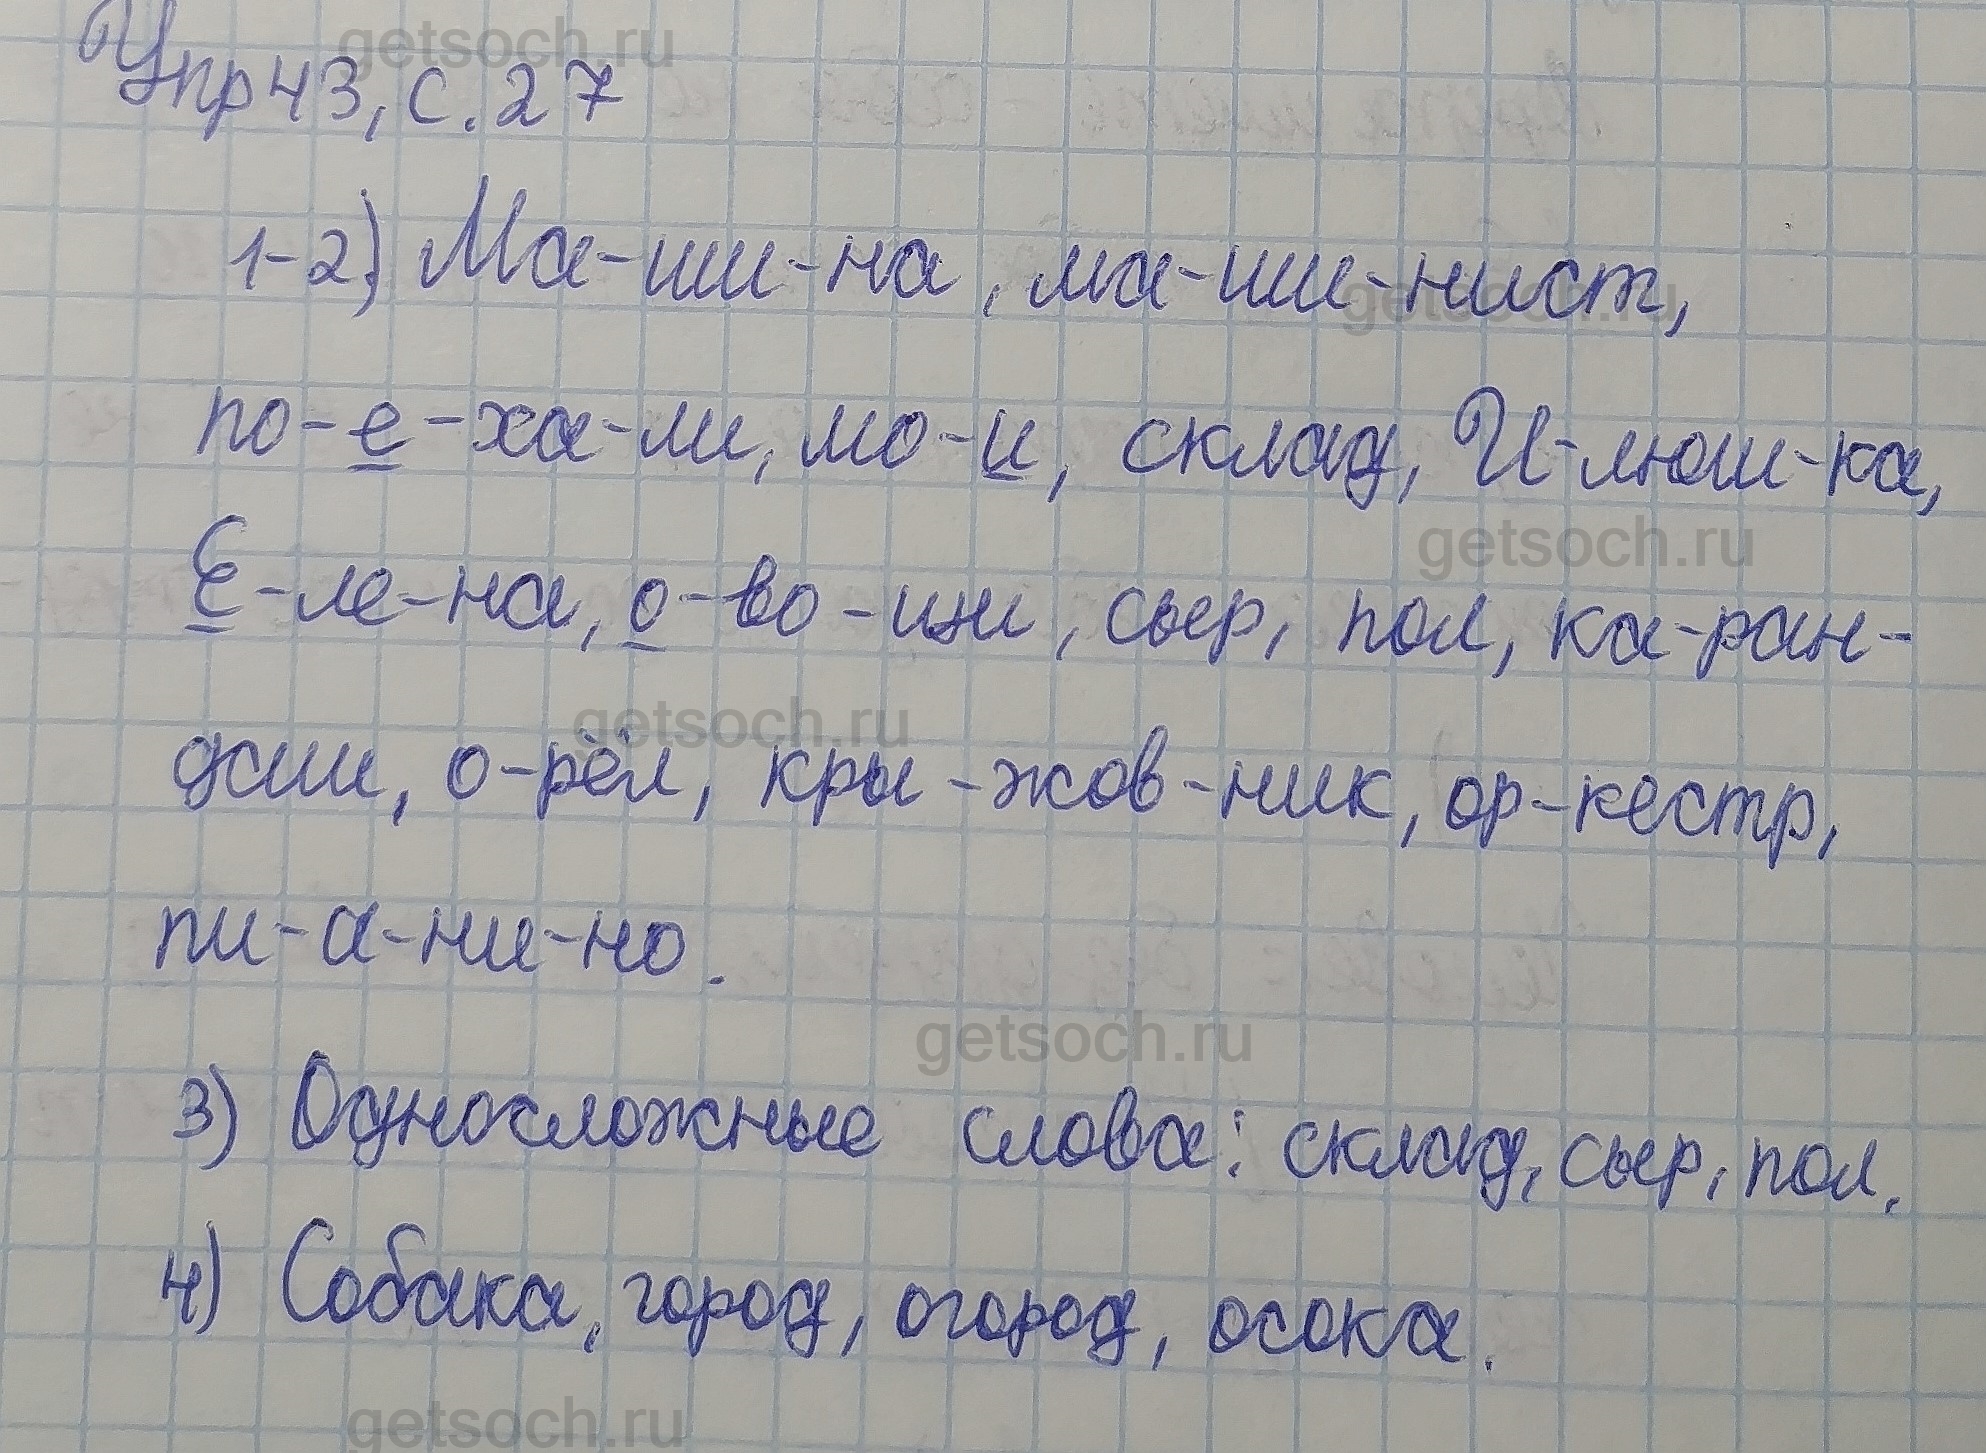 getsoch.ru
Упр 43, с. 27
1-2) Ма-ши-на, ма-ши-нист,
getsoch.ru
по-е-ха-ли, мо-и, склад, И-люш-ка,
getsoch.ru
Е-ле-на, о-во-щи, сыр, пол, ка-ран-
getsoch.ru
даш, о-рёл, кры-жов-ник, ор-кестр,
пи-а-ни-но.
getsoch.ru
3) Односложные слова: склад, сыр, пол.
4) Собака, город, огород, осока.
getsoch.ru